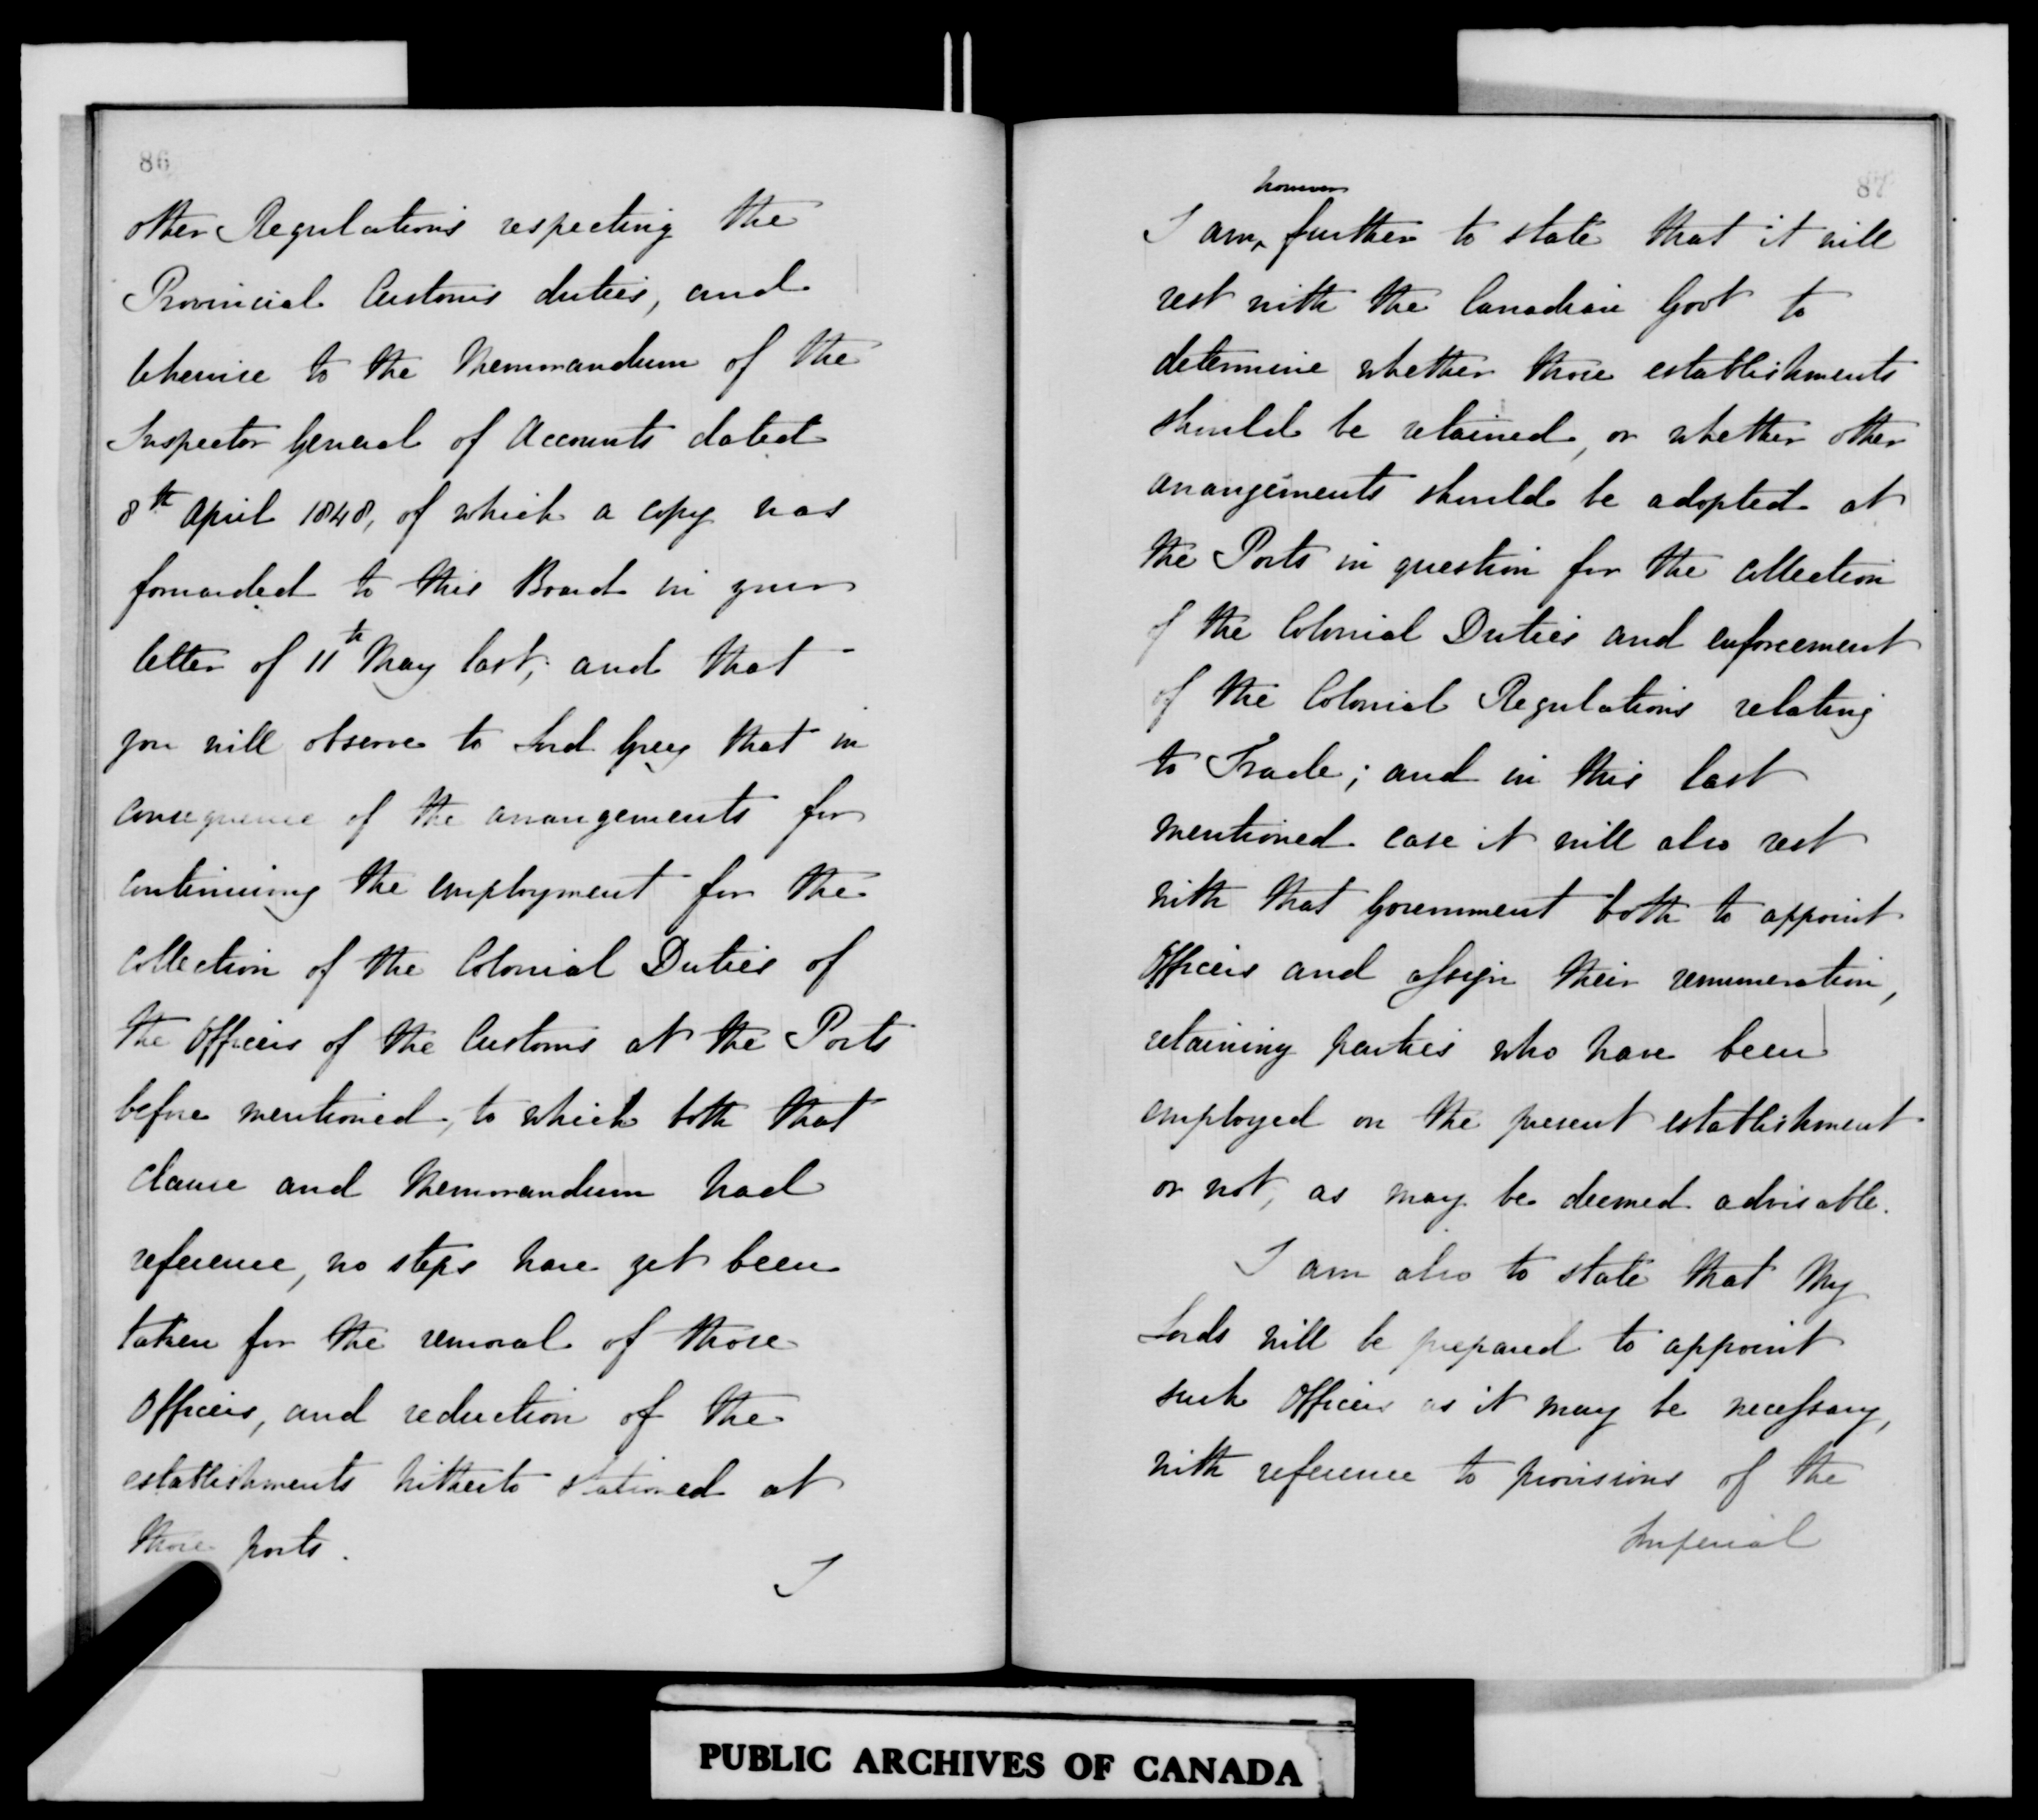 86
other Regulations respecting the
Provincial Customs duties, and
likewise to the Memorandum of the
Inspector General of Accounts dated
8th April 1848, of which a copy was
forwarded to this Board in your
letter of 11th May last; and that -
you will observe to Lord Grey that in
consequence of the arrangements for
continuing the employment for the
collection of the Colonial Duties of
the Officers of the Customs at the Ports
before mentioned, to which both that
clause and Memorandum had
reference, no steps have yet been
taken for the removal of those
Officers, and reduction of the
establishments hitherto stationed at
those ports.
I
87
however
I am, further to state that it will
rest with the Canadian Govt to
determine whether those establishments
should be retained, or whether other
arrangements should be adopted at
the Ports in question for the collection
of the Colonial Duties and enforcement
of the Colonial Regulations relating
to Trade; and in this last
mentioned case it will also rest
with that Government both to appoint
Officers and assign their remuneration,
retaining parties who have been
employed on the present establishment
or not, as may be deemed advisable.
I am also to state that My
Lords will be prepared to appoint
such Officers as it may be necessary,
with reference to provisions of the
Imperial
PUBLIC ARCHIVES OF CANADA